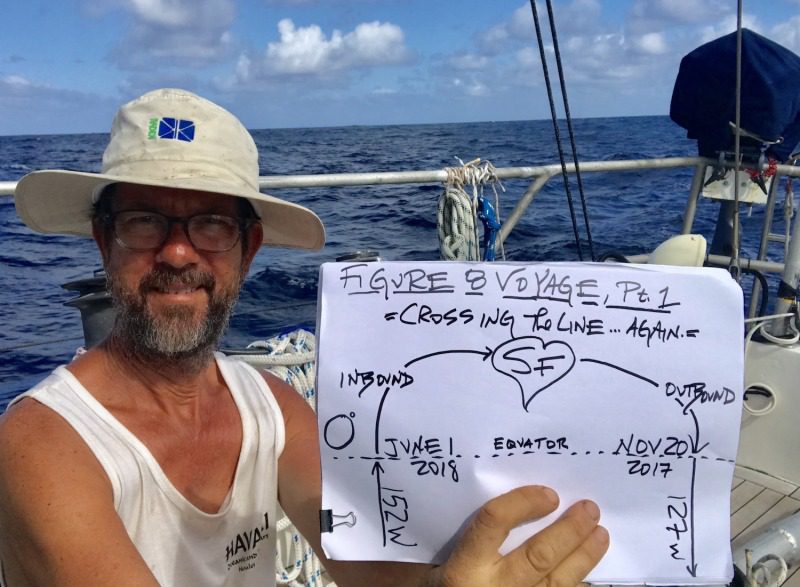 FIGURE 8 VOYAGE, Pt. 1
= CROSSING The LINE... AGAIN. =
SF
INBOUND
OUTBOUND
0°
JUNE 1
2018
EQUATOR
NOV 20
2017
152W
127W